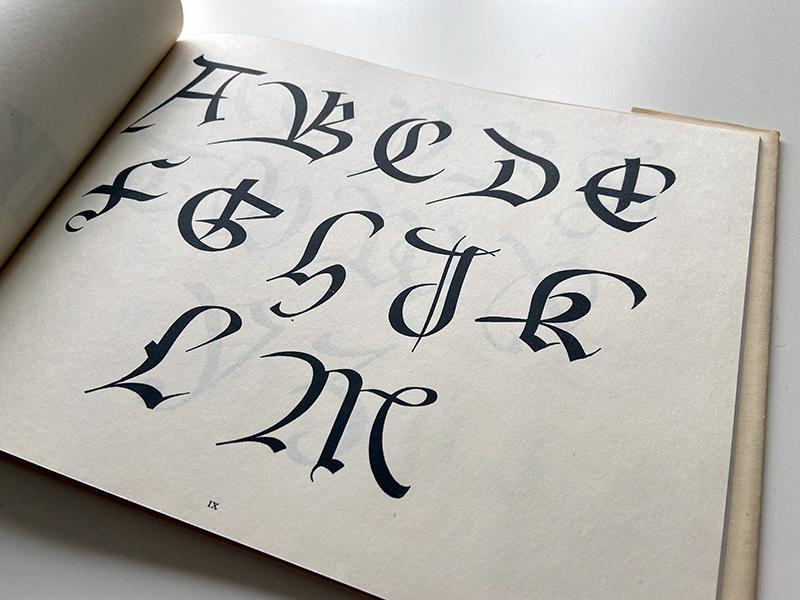 A B C D E
F G H I K
L M
IX